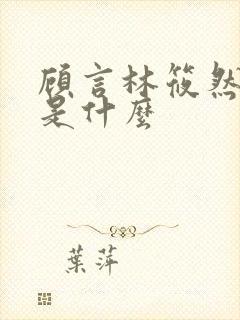 顾言林筱然
是什麼
葉萍